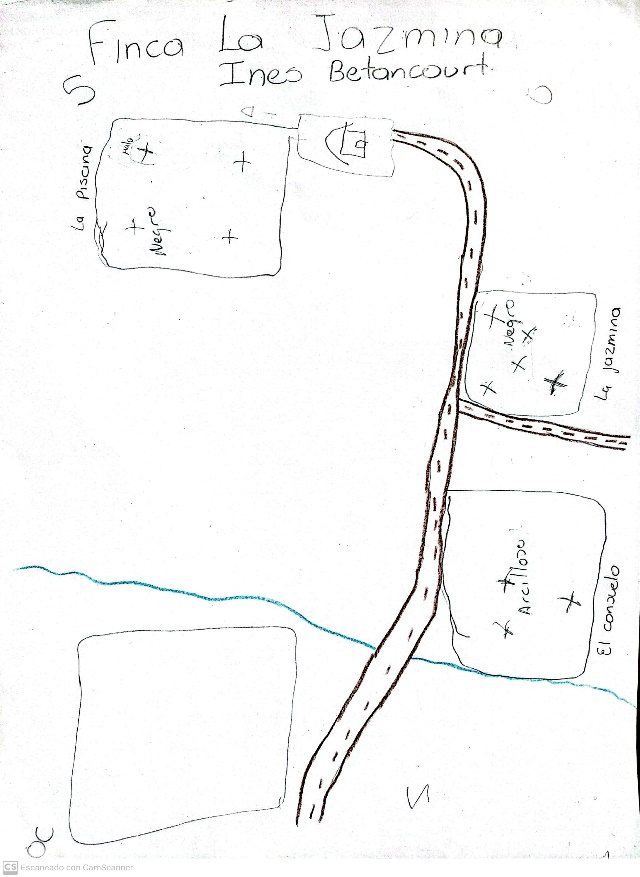 Finca La Jazmina
Ines Betancourt
S
O
La Piscina
Negro
Negro
La jazmina
Arcilloso
El consuelo
S
OC
CS Escaneado con CamScanner